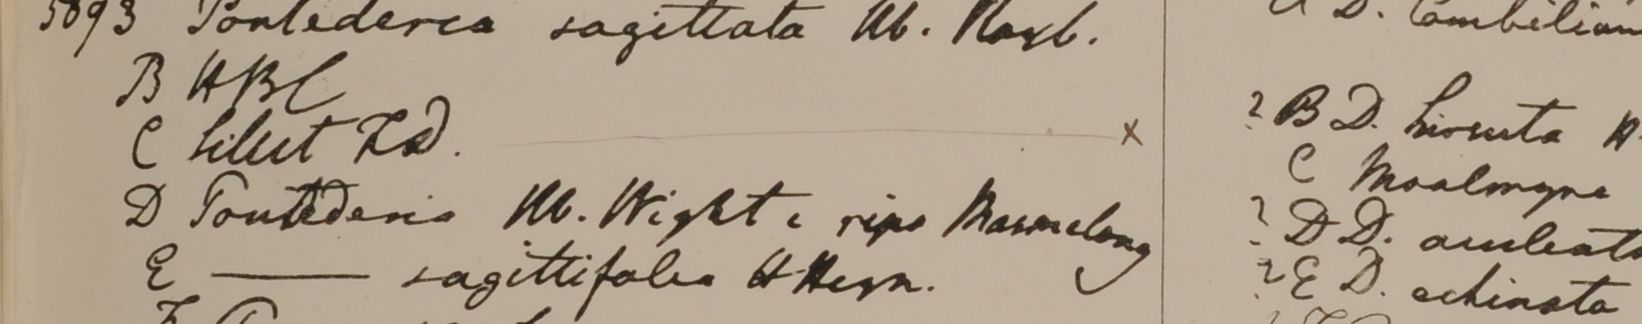 5093 Pontederea sagittata Hb. Roxb.
B HBC
C Silhet F.d.
D Pontederia Hb. Wight e ripa Marmelong
E ——— sagittifolia H Heyn.
B D. hirsuta H
C Moalmyne
? D D. aculeata
? E D. echinata